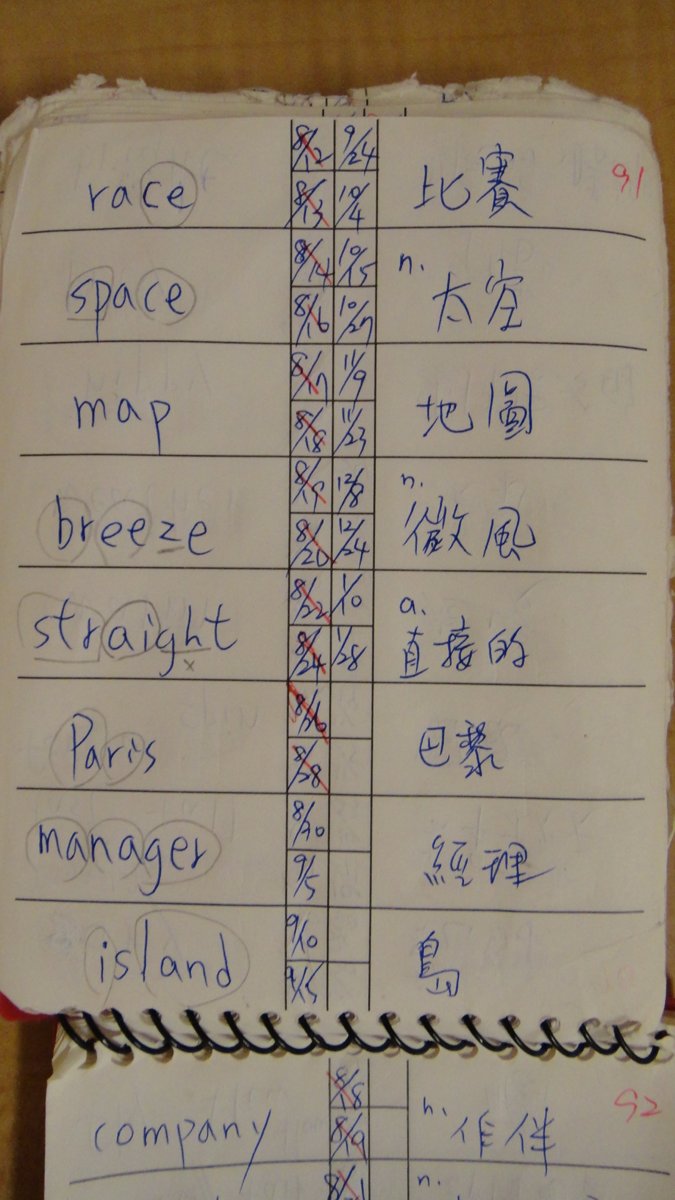 8/12 9/24 91
race 8/13 10/4 比賽
8/14 10/15 n.
space 8/16 10/27 太空
8/17 11/9
map 8/18 11/23 地圖
8/19 12/8 n.
breeze 8/20 12/24 微風
8/22 1/10 a.
straight 8/24 1/28 直接的
x
8/26
Paris 8/28 巴黎
8/30
manager 9/5 經理
9/10
island 9/15 島
8/18 n. 92
company 8/19 作伴
n.